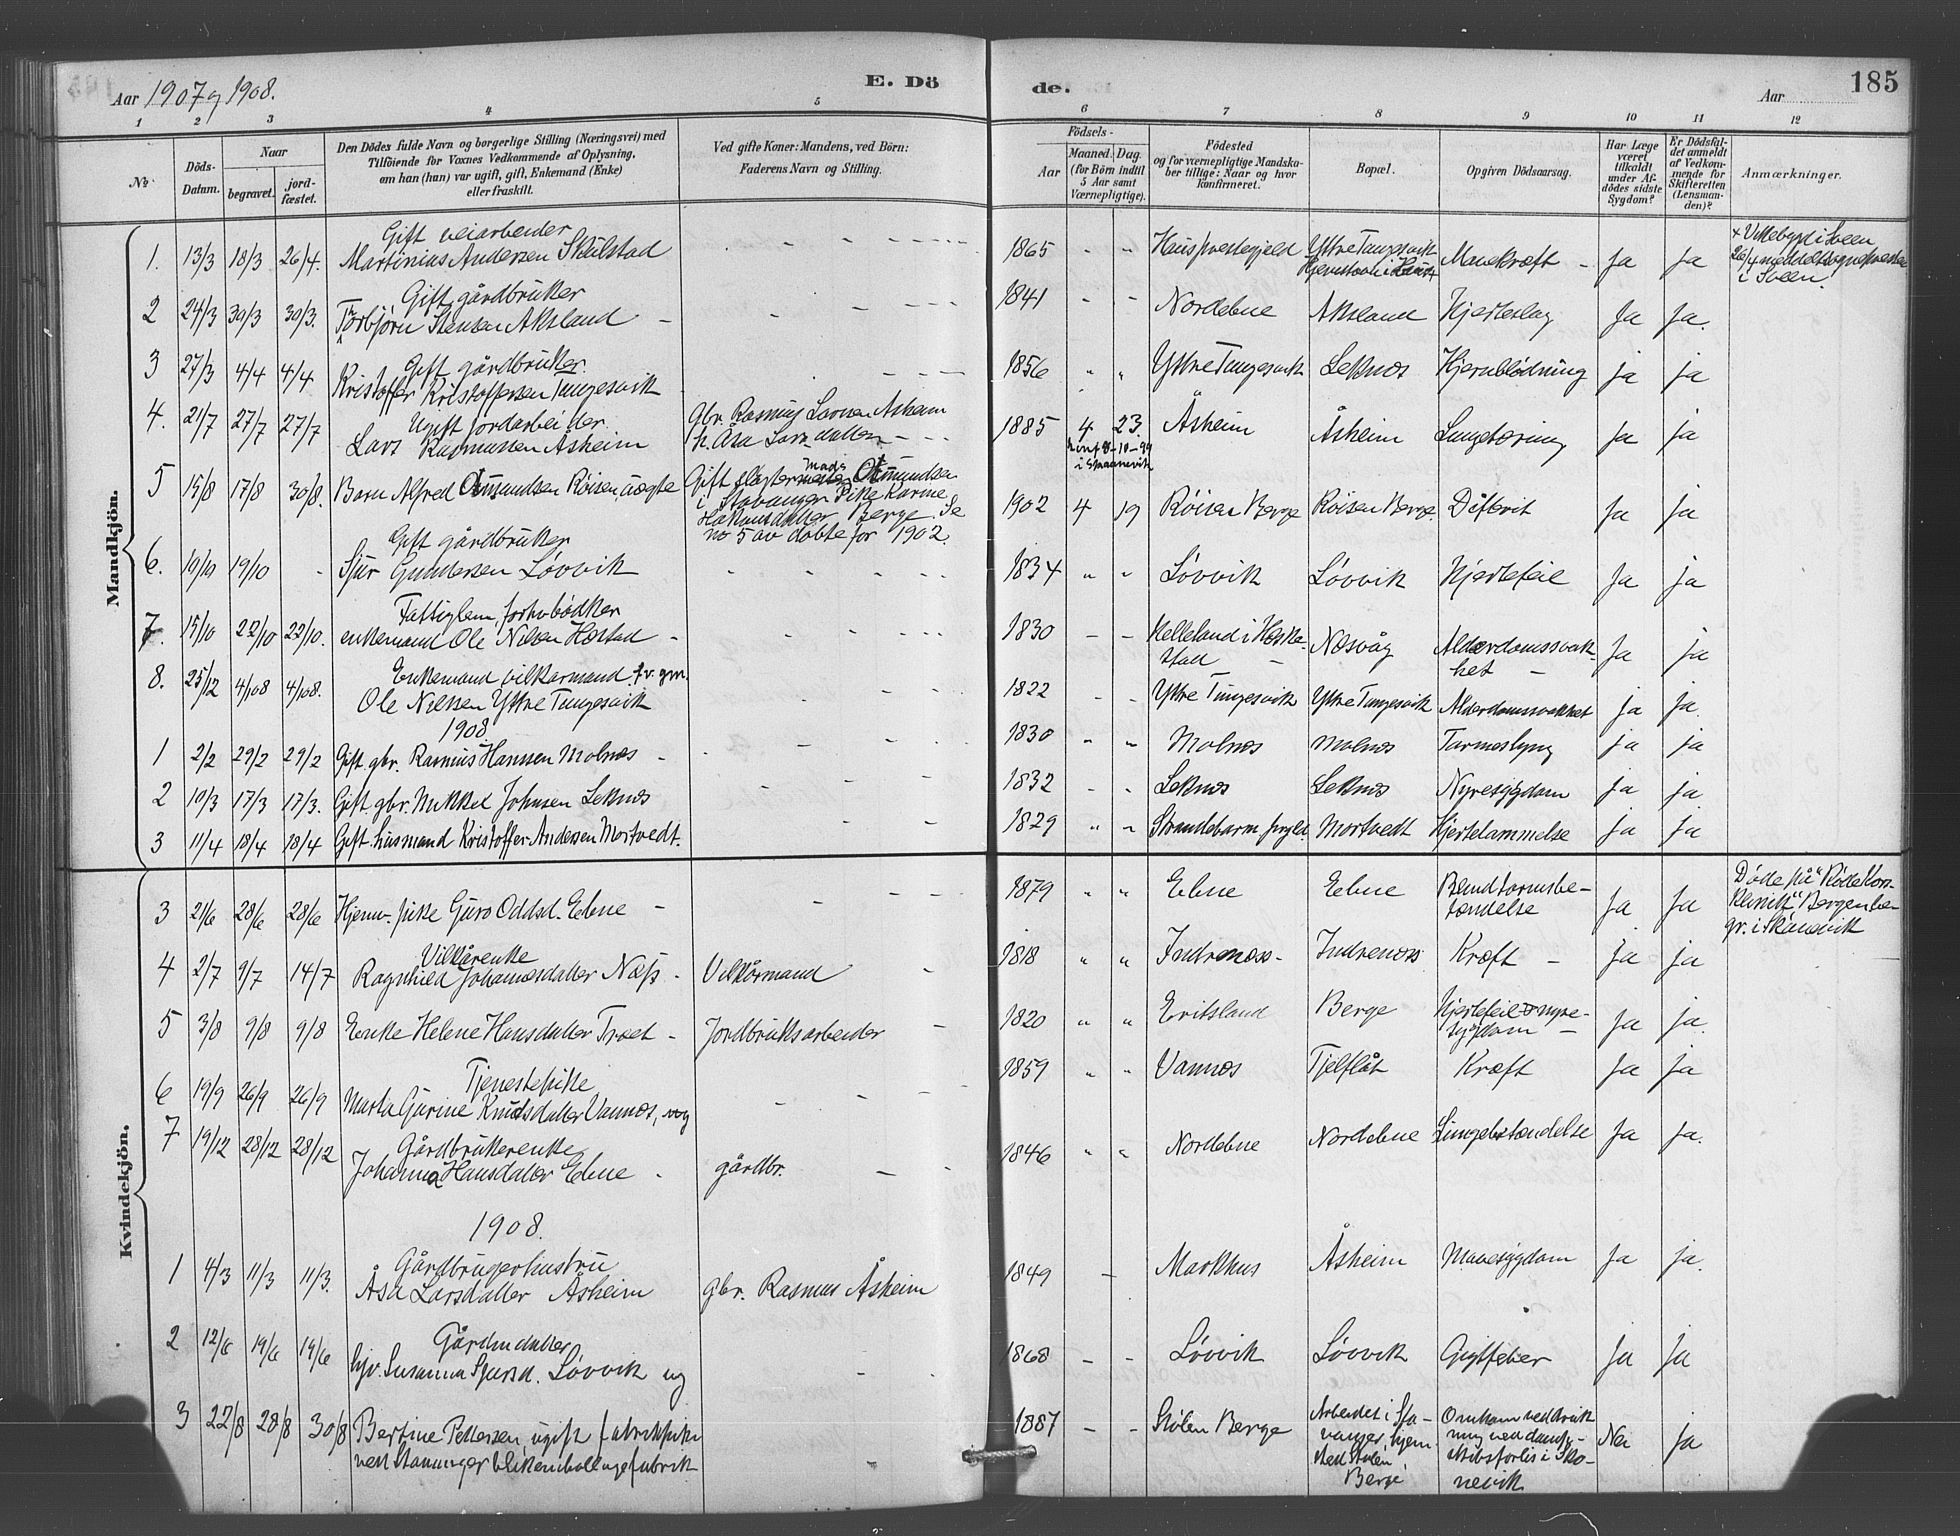 Aar 1907 og 1908.
E. Dö
de.
Aar
185
1 2 3 4 5 6 7 8 9 10 11 12
No
Döds-
Datum.
Naar
begravet.
jord-
fæstet.
Den Dödes fulde Navn og borgerlige Stilling (Næringsvei) med
Tilföiende for Voxnes Vedkommende af Oplysning,
om han (hun) var ugift, gift, Enkemand (Enke)
eller fraskilt.
Ved gifte Koner: Mandens, ved Börn:
Faderens Navn og Stilling.
Födsels-
Aar
Maaned. Dag.
(for Börn indtil
5 Aar samt
Værnepligtige).
Födested
og for værnepligtige Mandska-
ber tillige: Naar og hvor
konfirmeret.
Bopæl.
Opgiven Dödsaarsag.
Har Læge
været
tilkaldt
under Af-
dödes sidste
Sygdom?
Er Dödsfal-
det anmeldt
af Vedkom-
mende for
Skifteretten
(Lensman-
den)?
Anmærkninger.
Mandkjön.
Gift veiarbeider
1. 13/3 18/3 26/4. Martinius Andersen Skulstad - 1865 " " Haus prestegjeld Ytre Tungesvik Mavekræft - Ja Ja
26/4 meddelt sognepresten
i Sveen.
Gift gårdbruker
2 24/3 30/3 30/3. Torbjörn Stensen Aksland - 1841 - - Nordebne Aksland Hjerteslag Ja Ja.
Gift gårdbruker
3 27/3 4/4 4/4 Kristoffer Kristoffersen Tungesvik 1856 " " Ytre Tungesvik Leknes Hjerneblödning ja ja
Ugift jordarbeider
4. 21/7 27/7 27/7 Lars Rasmussen Åsheim Gbr. Rasmus Larsen Åsheim
h. Åsa Larsdatter - 1885 4 23 Åsheim Åsheim Lungetæring ja ja
konf 8-10-99
i Skaanevik
5 15/8 17/8 30/8. Barn Alfred Åmundsen Röisen, uægte Gift slagter Mads Åmundsen
i Stavanger Pike Karine
Håkonsdatter Berge. Se
no 5 av døbte for 1902.
1902 4 19 Röisen Berge Röisen Berge. Difterit Ja ja
Gift gårdbruker
6. 19/9 19/10 - Sjur Gundersen Lövvik 1834 " " Lövvik Lövvik Hjertefeil Ja ja
Fattiglem, forhv bödker
7. 15/10 22/10 22/10. enkemand Ole Nilsen Hæstad - 1830 - - Helleland i Heske-
stad - Næsvåg Alderdomssvak-
het - Ja ja
Enkemand vilkårmand fv. gm.
8. 25/12 4/1 08 4/1 08. Ole Nilssen Ytre Tungesvik 1822 - - Ytre Tungesvik Ytre Tungesvik Alderdomssvakhet ja ja.
1908.
1 2/2 29/2 29/2 Gift gbr. Rasmus Hanssen Molnes - 1830 " " Molnes Molnes Tarmeslyng ja ja
2 10/3 17/3 17/3. Gift gbr. Mikkel Johnsen Leknes 1832 " " Leknes Leknes Nyresygdom ja ja
3 11/4 18/4 18/4 Gift husmand Kristoffer Andersen Mortvedt. 1829 " " Strandebarm prgld. Mortvedt Hjertelammelse ja ja
Kvindekjön.
3 21/6 28/6 28/6 Hjemv. pike Guro Oddsd. Ebne - 1879 " " Ebne Ebne Blindtarmsbe-
tændelse Ja Ja
Döde på "Röde Kors
Klinik" Bergen be-
gr. i Skånevik
Vilkårenke
4 2/7 9/7 14/7 Ragnhild Johannesdatter Næss - Vilkårmand - 1818 " " Indrenæss - Indrenæs Kræft - ja ja
5 3/8 9/8 9/8 Enke Helene Hansdatter Træet - Jordbruksarbeider - 1820 " " Eritsland Berge Hjertefeil & nyre-
sygdom - Ja ja.
Tjenestepike
6 19/9 26/9 26/9 Marta Gurine Knutsdatter Vannes, ug 1859 " " Vannes Tjelflåt Kræft Ja ja
Gårdbrukerenke
7 19/12 28/12 28/12 Johanna Hansdatter Ebne - gårdbr. - 1846 " " Nordebne Nordebne Lungebetændelse Ja ja.
1908.
Gårdbrugerhustru
1 4/3 11/3 11/3. Åsa Larsdatter Åsheim gbr. Rasmus Åsheim 1849 - Markhus Åsheim Mavesygdom Ja ja.
Gårdmdatter
2 12/6 19/6 19/6 hjv. Susanna Sjursd. Lövvik ug 1868 - - Lövvik Lövvik Gigtfeber Ja Ja
3 22/8 28/8 30/8 Bertine Pettersen ugift fabrikpike
ved Stavanger blikemballagefabrik
1887 - - Stölen Berge Arbeidet i Sta-
vanger, hjem-
sted Stölen
Berge
Omkom ved druk-
ning ved damp-
skibsforlis i Skå-
nevik
Nei Ja